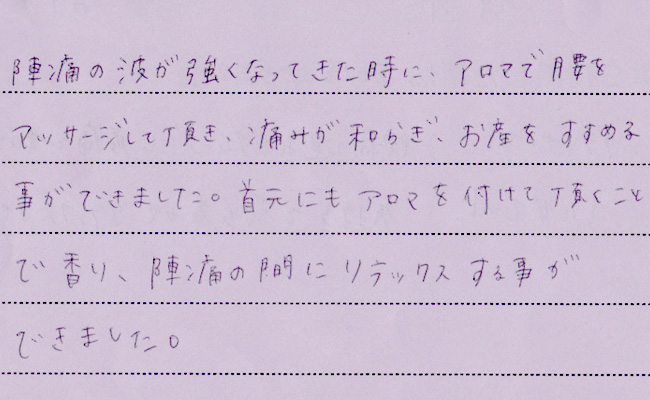 陣痛の波が強くなってきた時に、アロマで腰を
マッサージして頂き、痛みが和らぎ、お産をすすめる
事ができました。首元にもアロマを付けて頂くこと
で香り、陣痛の間にリラックスする事が
できました。